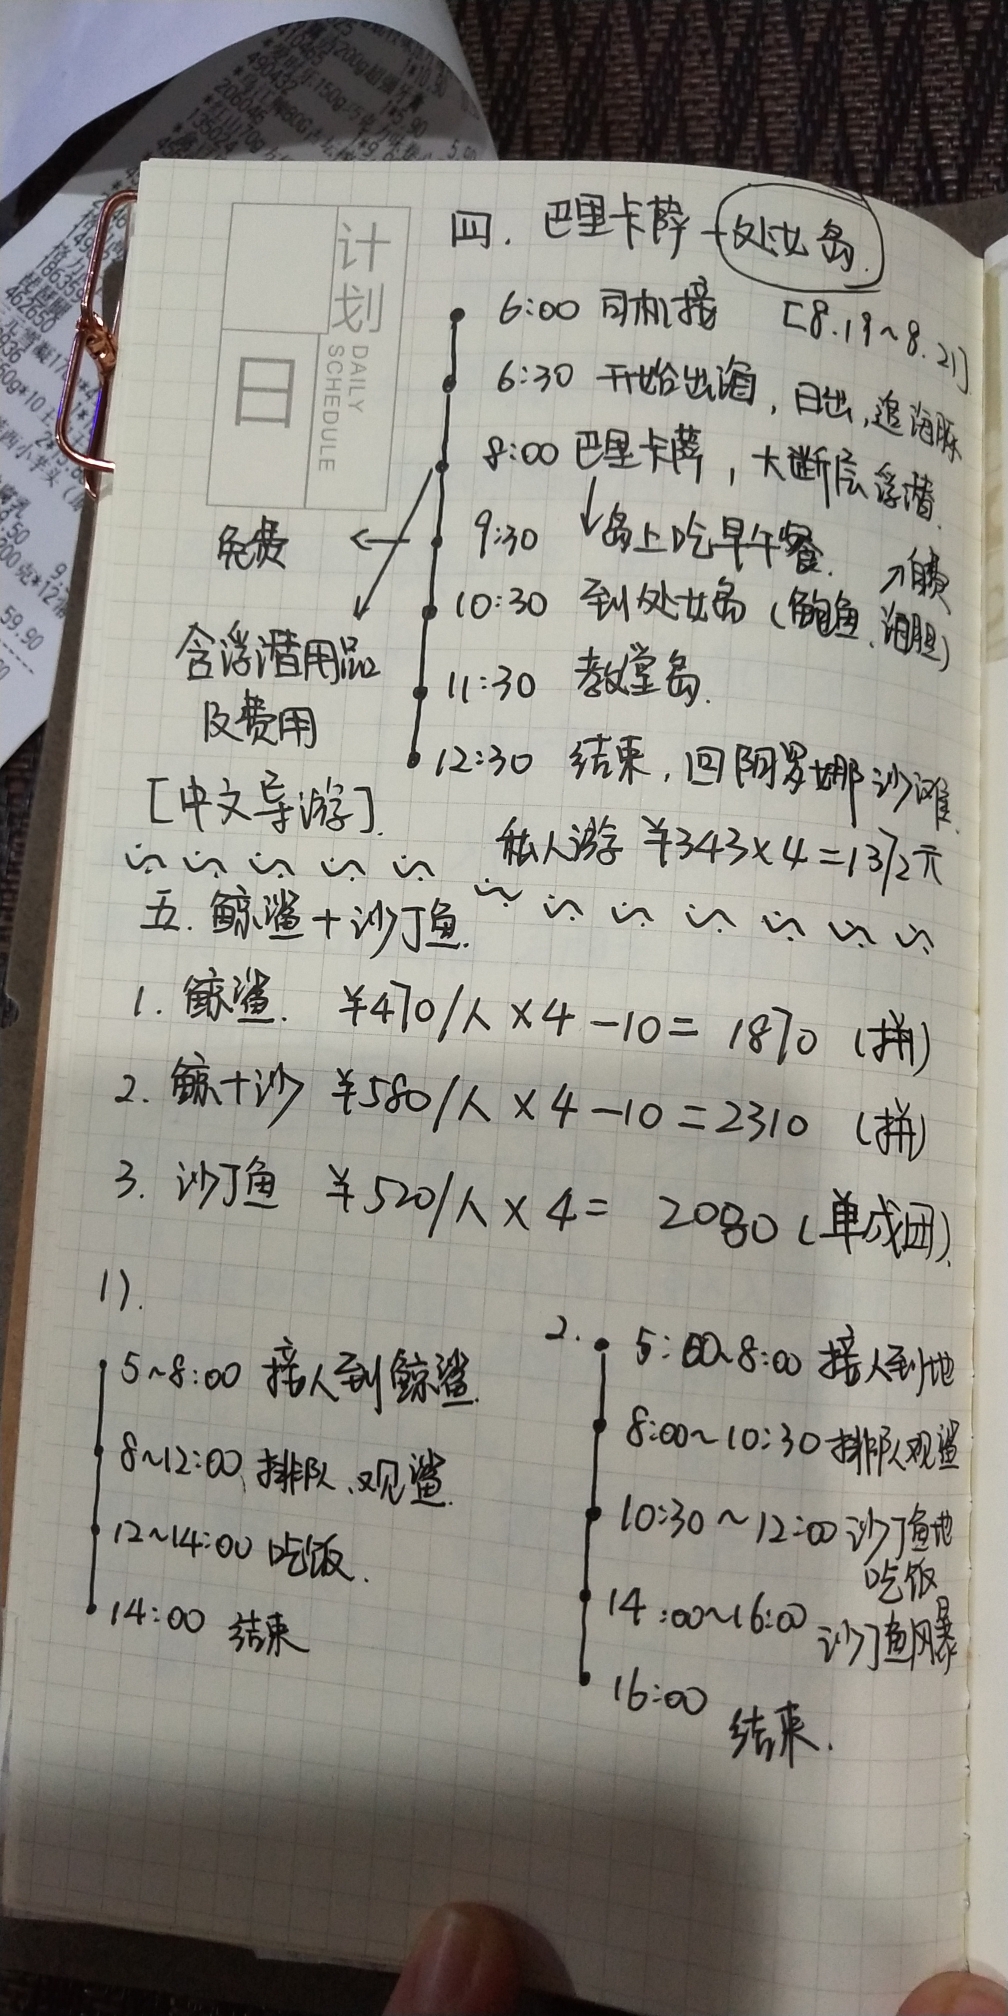 计划
日
DAILY
SCHEDULE
四. 巴里卡萨－处女岛.
6:00 司机接 [8.19~8.21]
6:30 开始出海, 日出, 追海豚
8:00 巴里卡萨, 大断层浮潜.
免费
9:30 岛上吃早午餐.
自费
10:30 到处女岛 (鲍鱼、海胆)
含浮潜用品
及费用
11:30 教堂岛.
12:30 结束, 回阿罗娜沙滩.
[中文导游].
私人游 ¥343×4=1372元
五. 鲸鲨+沙丁鱼.
1. 鲸鲨. ¥470/人×4-10= 1870 (拼)
2. 鲸+沙 ¥580/人×4-10=2310 (拼)
3. 沙丁鱼 ¥520/人×4= 2080 (单成团).
1).
5~8:00 接人到鲸鲨.
8~12:00 排队、观鲨.
12~14:00 吃饭.
14:00 结束
2.
5:00~8:00 接人到地
8:00~10:30 排队观鲨
10:30~12:00 沙丁鱼地
吃饭
14:00~16:00 沙丁鱼风暴
16:00 结束.
490432
206046
135024
462650
5.90
59.90